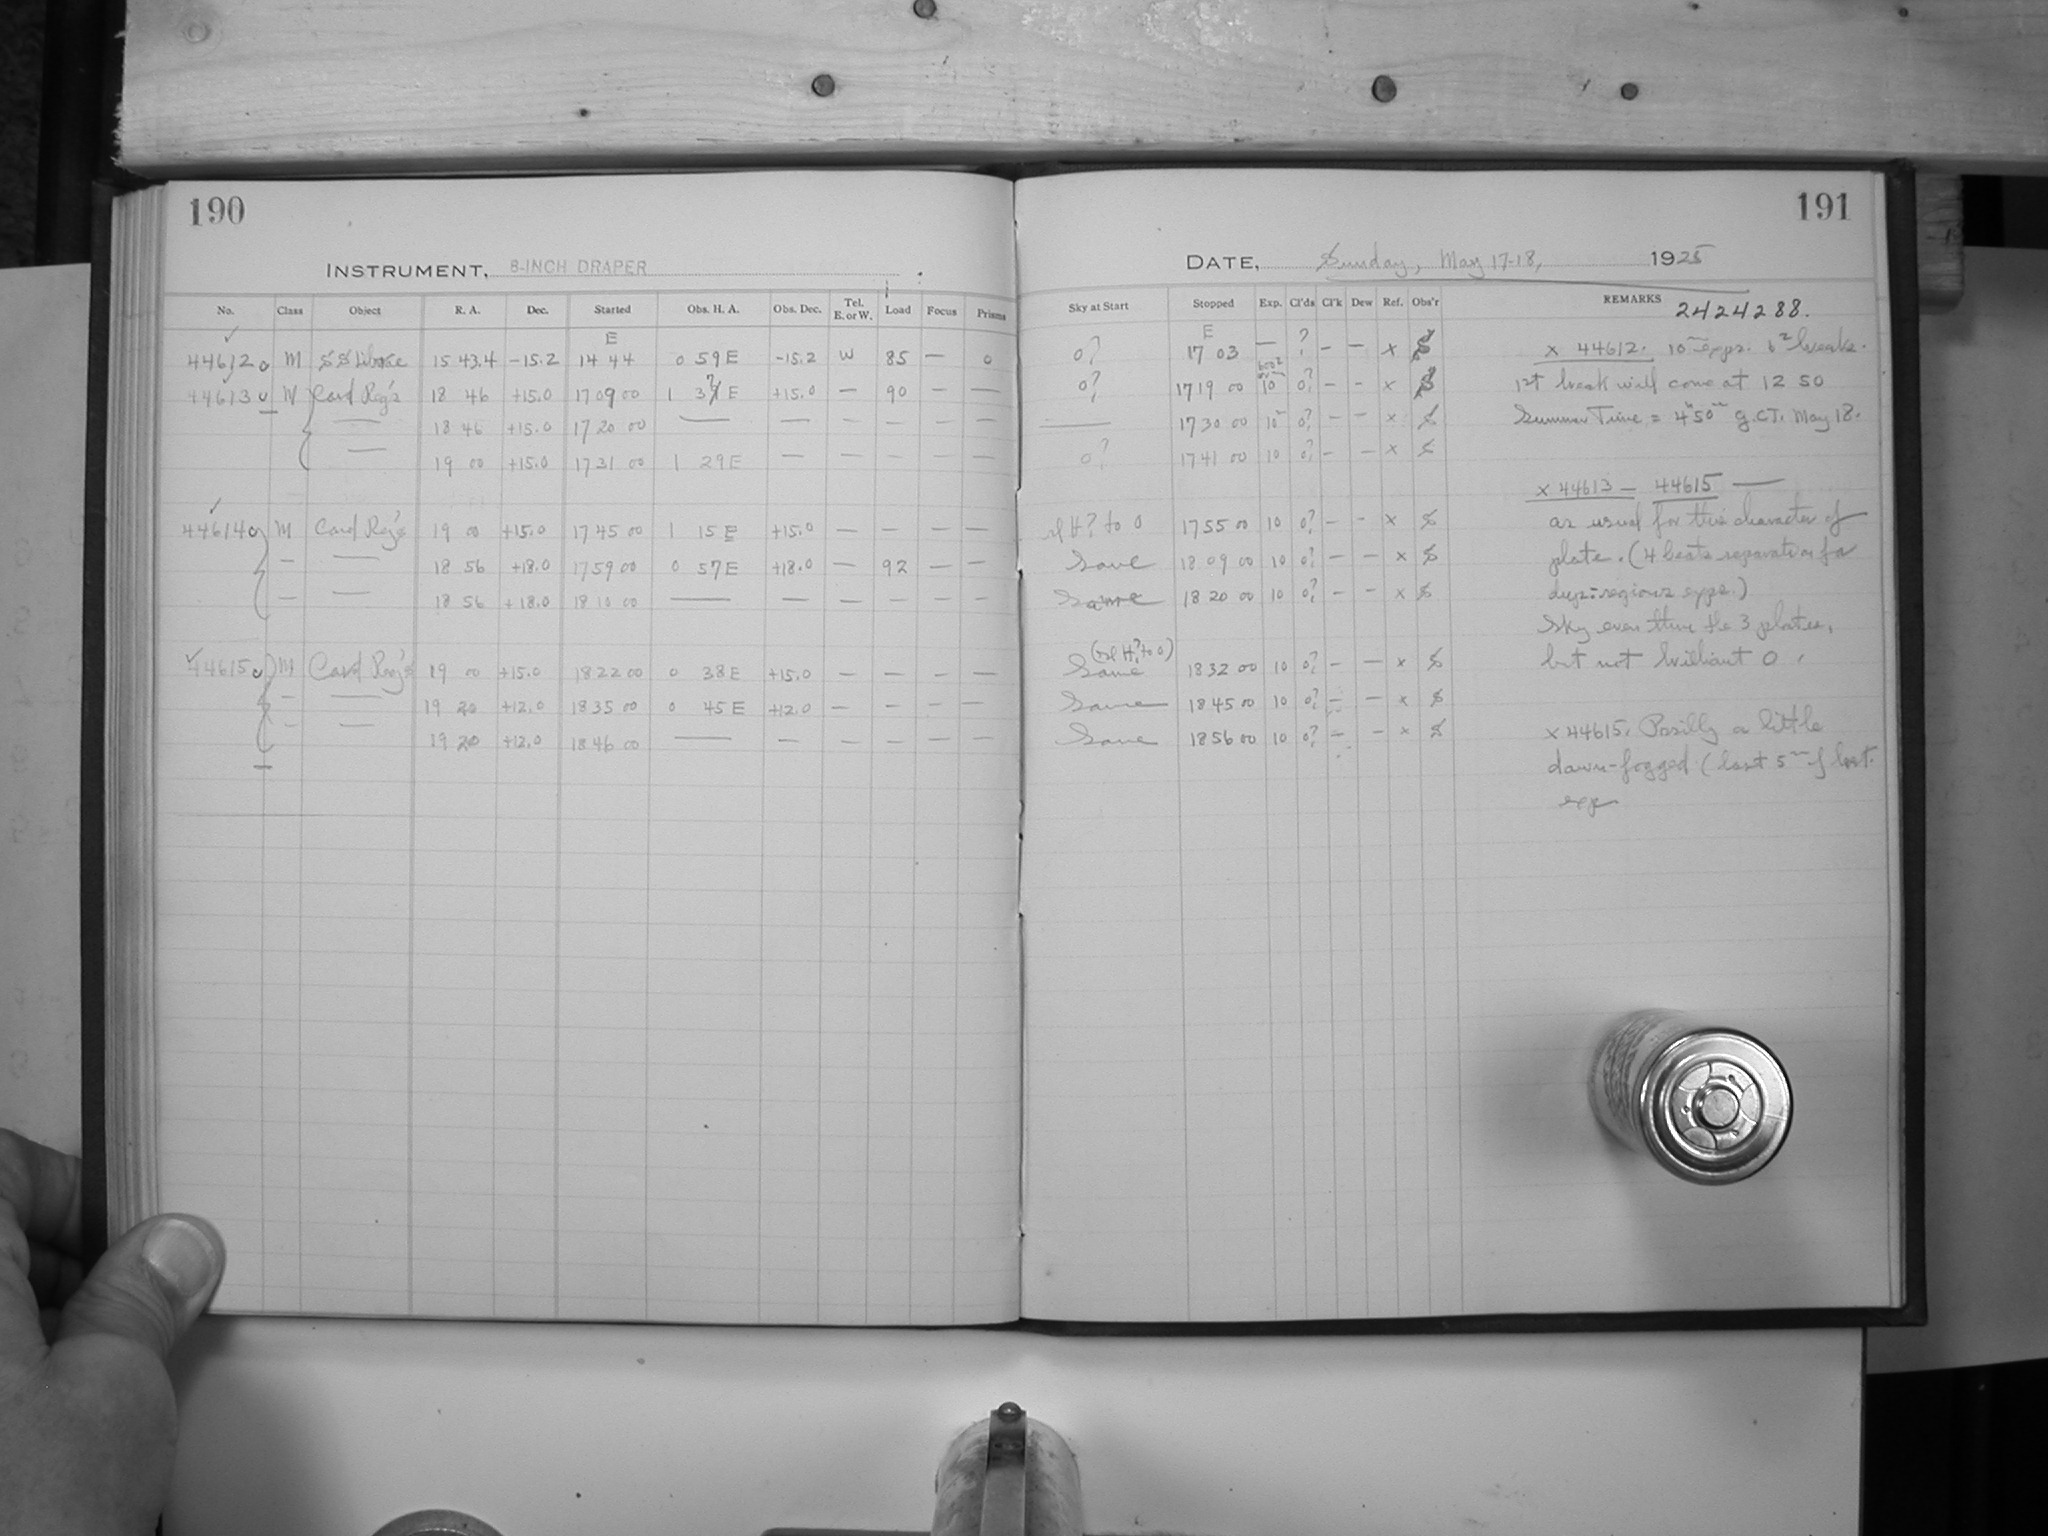 190
INSTRUMENT, 8-INCH DRAPER
No. Class Object R. A. Dec. Started Obs. H. A. Obs. Dec. Tel. E. or W. Load Focus Prisms
E
44612 M Librae 15 43.4 -15.2 14 44 0 59 E -15.2 W 85 — 0
44613 M Card Reg's 18 46 +15.0 17 09 00 1 E +15.0 — 90 — —
— 18 46 +15.0 17 20 00 — — — — — —
— 19 00 +15.0 17 31 00 1 29 E — — — — —
44614 M Card Reg's 19 00 +15.0 17 45 00 1 15 E +15.0 — — — —
— — 18 56 +18.0 17 59 00 0 57 E +18.0 — 92 — —
— — 18 56 +18.0 18 10 00 — — — — — —
44615 M Card Reg's 19 00 +15.0 18 22 00 0 38 E +15.0 — — — —
— — 19 20 +12.0 18 35 00 0 45 E +12.0 — — — —
— — 19 20 +12.0 18 46 00 — — — — — —
191
DATE, Sunday, May 17-18, 1925
Sky at Start Stopped Exp. Cl'ds Cl'k Dew Ref. Obs'r REMARKS
2424288.
E
0? 17 03 — ? — — x
0? 17 19 00 10 0? — — x
— 17 30 00 10 0? — — x
0? 17 41 00 10 0? — — x
H? to 0 17 55 00 10 0? — — x
Same 18 09 00 10 0? — — x
Same 18 20 00 10 0? — — x
(H? to 0)
Same 18 32 00 10 0? — — x
Same 18 45 00 10 0? — — x
Same 18 56 00 10 0? — — x
x 44612. 10m exps. breaks.
1st break will come at 12 50
Summer Time = 4h 50m G.C.T. May 18.
x 44613 — 44615 —
as usual for this character of
plate. (4 beats separation for
regions exps.)
Sky even thru the 3 plates,
but not brilliant 0.
x 44615. Possibly a little
dawn-fogged (last 5m of last
exp